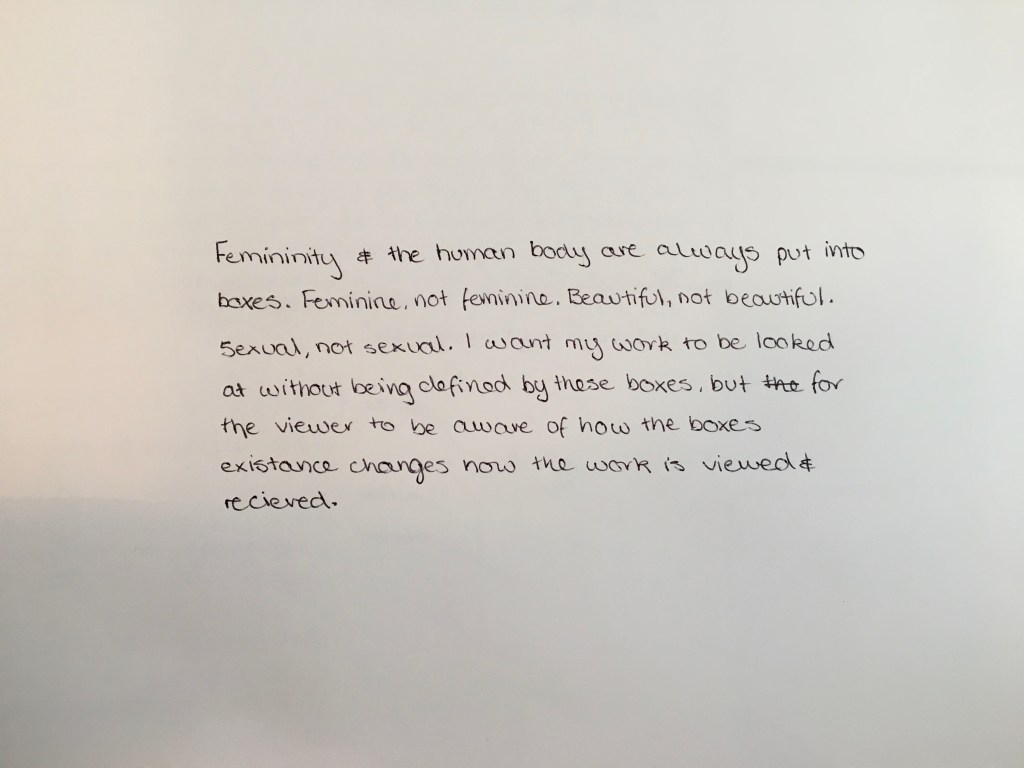 Femininity & the human body are always put into
boxes. Feminine, not feminine. Beautiful, not beautiful.
Sexual, not sexual. I want my work to be looked
at without being defined by these boxes, but the for
the viewer to be aware of how the boxes
existance changes how the work is viewed &
recieved.